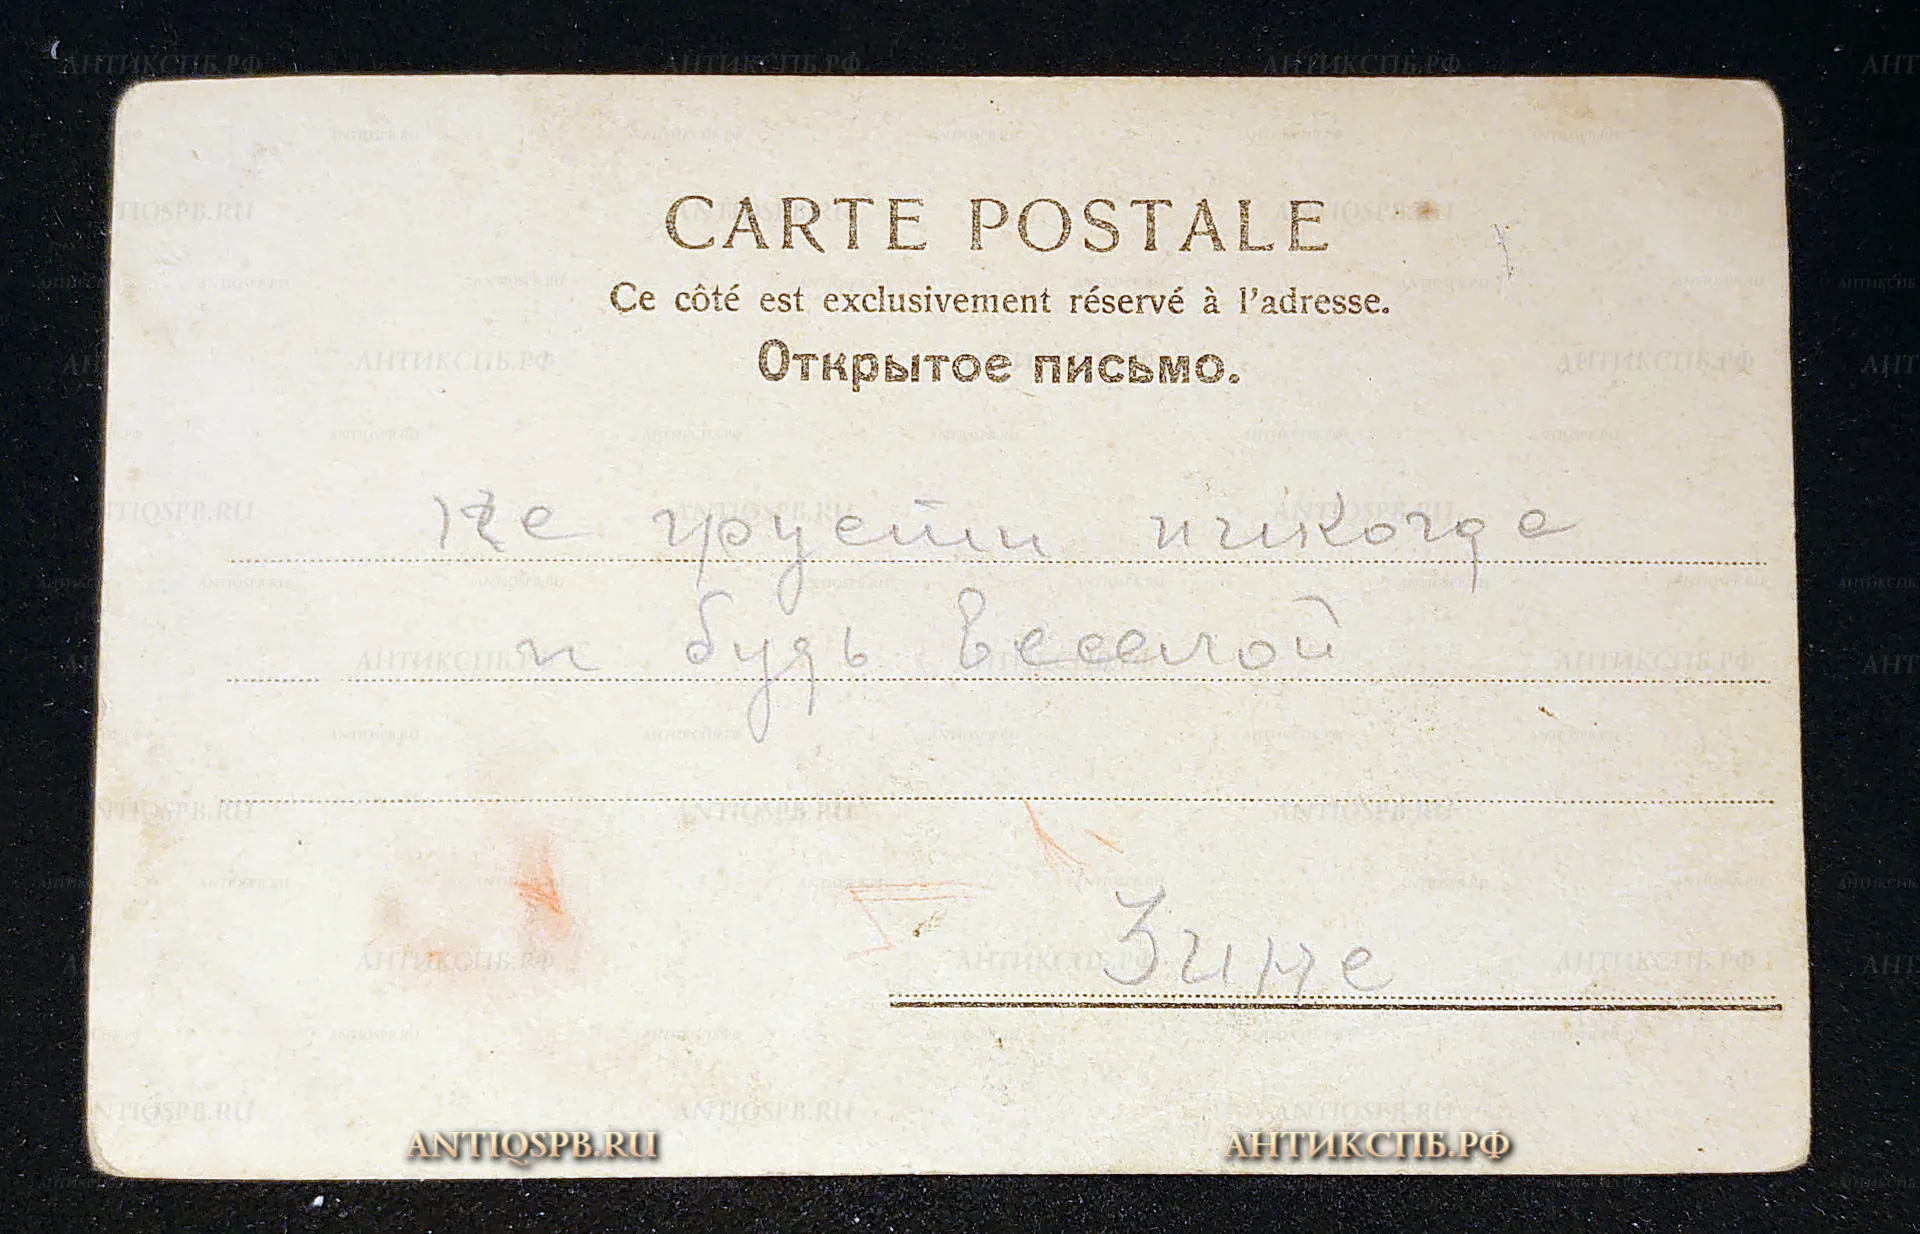 CARTE POSTALE
Ce côté est exclusivement réservé à l'adresse.
Открытое письмо.
не грусти никогда
и будь веселой
Зине
ANTIQSPB.RU АНТИКСПБ.РФ